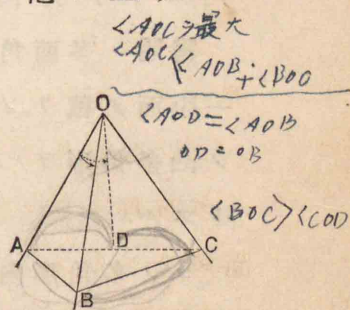 ∠AOCヲ最大
∠AOC<∠AOB+∠BOC
O
∠AOD=∠AOB
OD=OB
∠BOC>∠COD
A
D
C
B